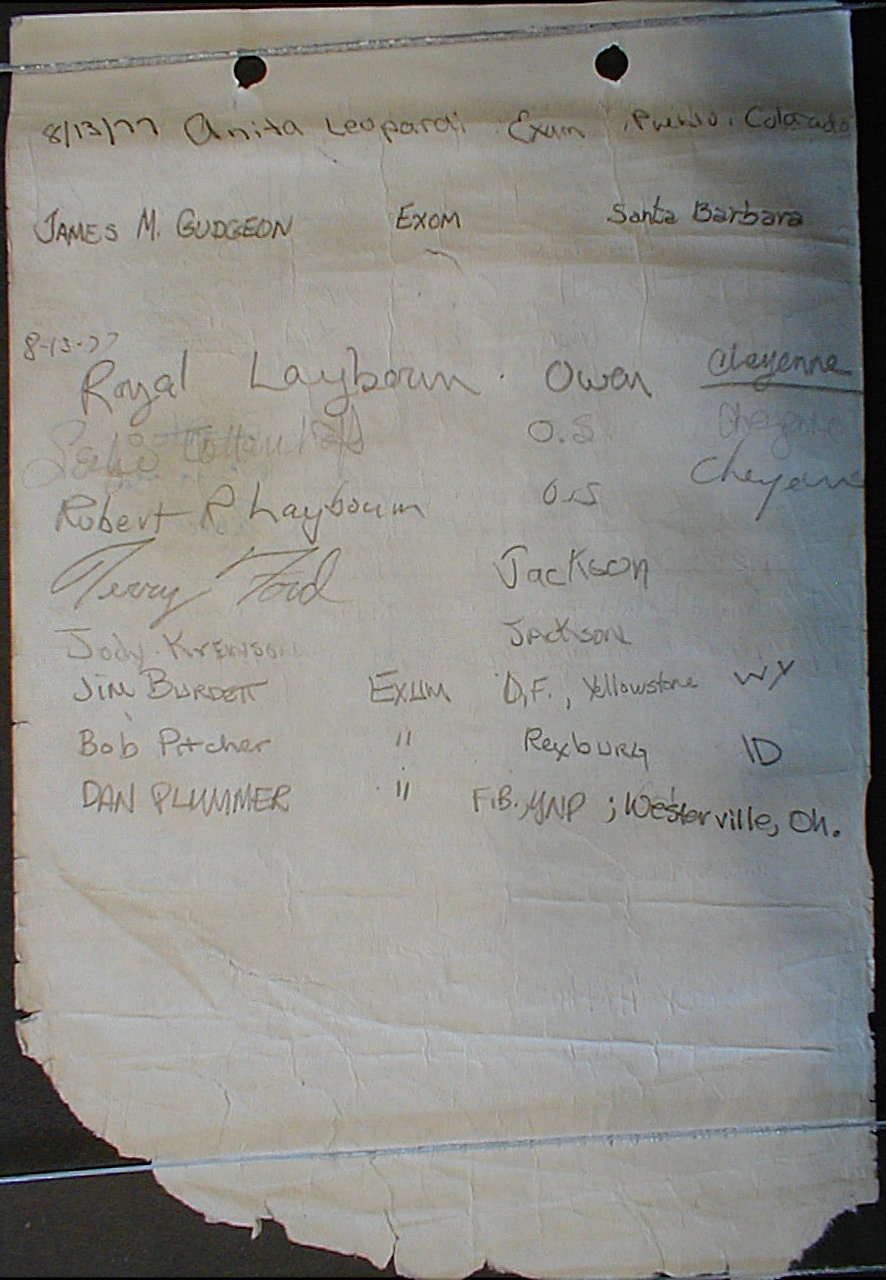 8/13/77 Anita Leopardi Exum, Pueblo, Colorado
JAMES M. GUDGEON EXOM Santa Barbara
8-13-77
Royal Laybourn Owen Cheyenne
O.S. Cheyenne
Robert R Laybourn O.S Cheyenne
Terry Ford Jackson
Jody Jackson
Jim BURDETT EXUM D.F., Yellowstone WY
Bob Pitcher " Rexburg ID
DAN PLUMMER " F.B., YNP ; Westerville, Oh.